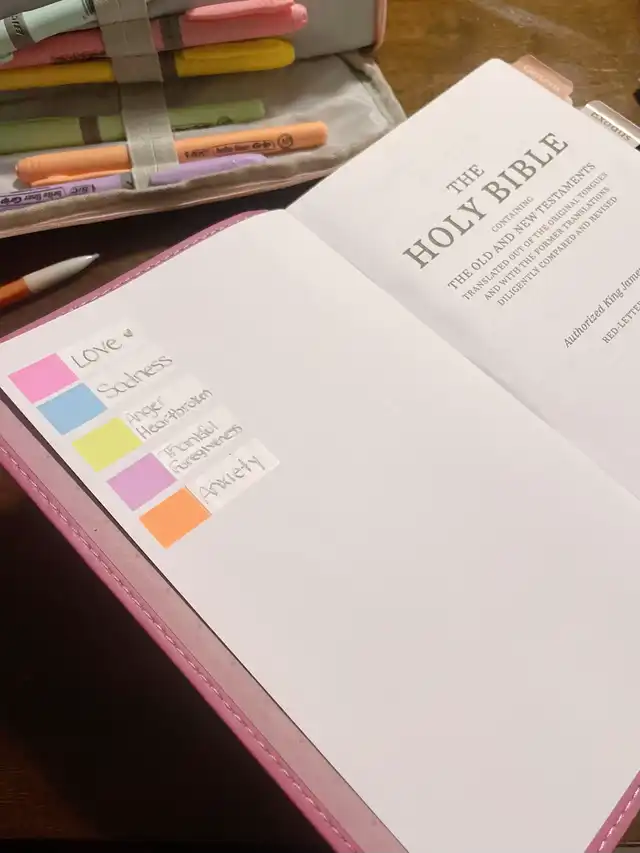 Exodus
THE
HOLY BIBLE
CONTAINING
THE OLD AND NEW TESTAMENTS
TRANSLATED OUT OF THE ORIGINAL TONGUES
AND WITH THE FORMER TRANSLATIONS
DILIGENTLY COMPARED AND REVISED
Authorized King James
RED-LETTER
Love
Sadness
Anger
Heartbroken
Thankful
Foregiveness
Anxiety